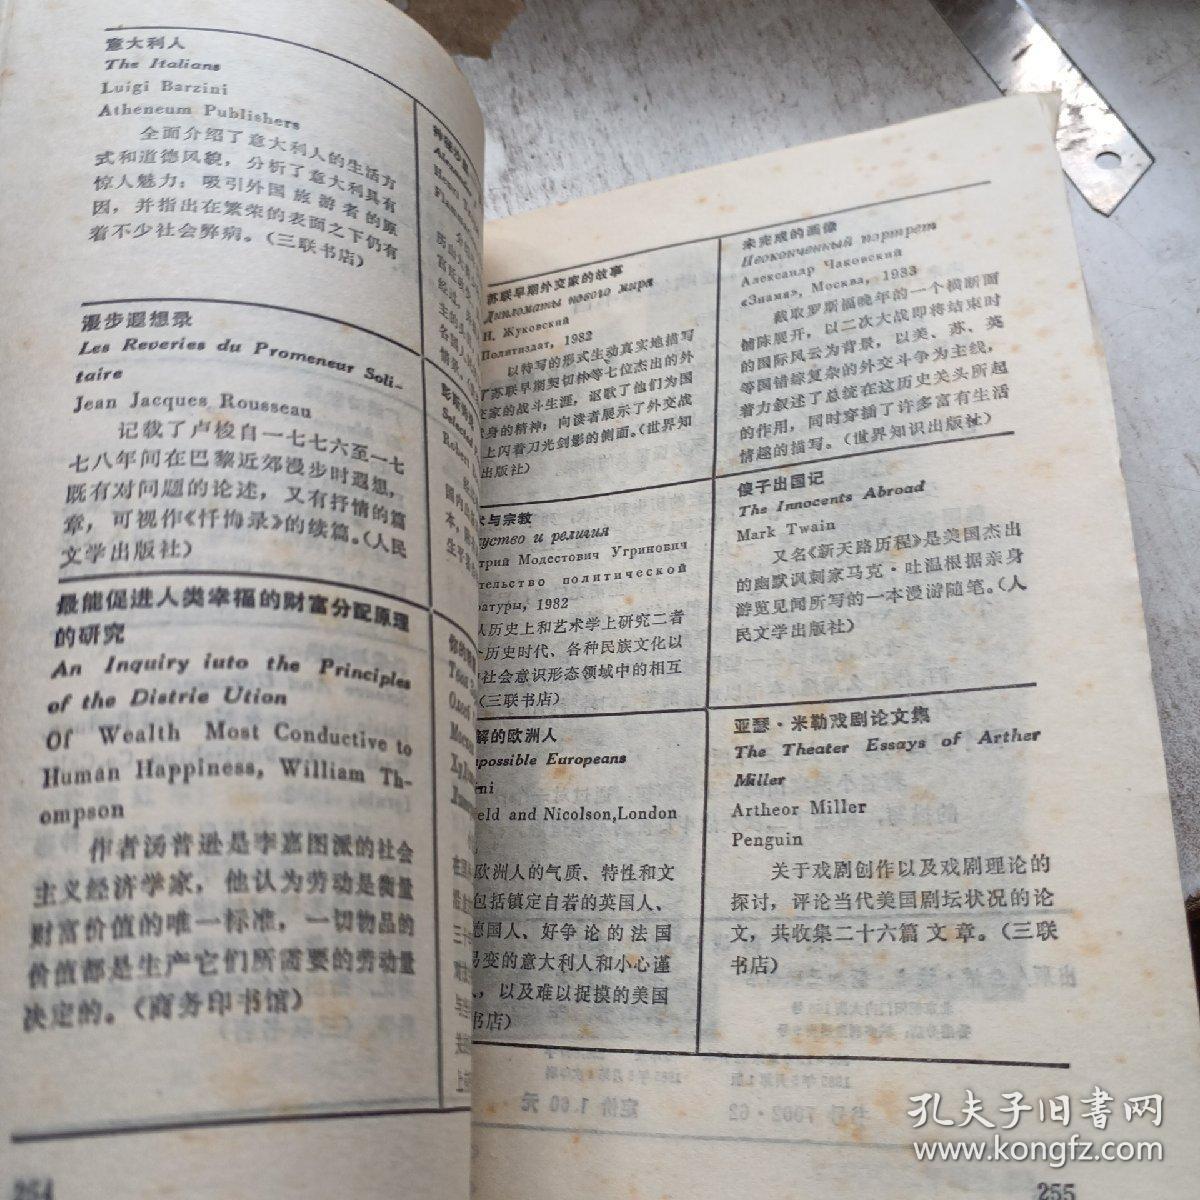 意大利人
The Italians
Luigi Barzini
Atheneum Publishers
全面介绍了意大利人的生活方
式和道德风貌，分析了意大利具有
惊人魅力；吸引外国旅游者的原
因，并指出在繁荣的表面之下仍有
着不少社会弊病。（三联书店）
漫步遐想录
Les Reveries du Promeneur Soli-
taire
Jean Jacques Rousseau
记载了卢梭自一七七六至一七
七八年间在巴黎近郊漫步时遐想，
既有对问题的论述，又有抒情的篇
章，可视作《忏悔录》的续篇。（人民
文学出版社）
最能促进人类幸福的财富分配原理
的研究
An Inquiry iuto the Principles
of the Distrie Ution
Of Wealth Most Conductive to
Human Happiness, William Th-
ompson
作者汤普逊是李嘉图派的社会
主义经济学家，他认为劳动是衡量
财富价值的唯一标准，一切物品的
价值都是生产它们所需要的劳动量
决定的。（商务印书馆）
254
苏联早期外交家的故事
Дипломаты нового мира
Н. Жуковский
Политиздат, 1982
以特写的形式生动真实地描写
了苏联早期契切林等七位杰出的外
交家的战斗生涯，讴歌了他们为国
身的精神；向读者展示了外交战
上闪着刀光剑影的侧面。（世界知
出版社）
术与宗教
усство и религия
трий Модестович Угринович
тельство политической
ратуры, 1982
从历史上和艺术学上研究二者
个历史时代、各种民族文化以
社会意识形态领域中的相互
（三联书店）
解的欧洲人
mpossible Europeans
ini
eld and Nicolson, London
欧洲人的气质、特性和文
包括镇定自若的英国人、
德国人、好争论的法国
易变的意大利人和小心谨
，以及难以捉摸的美国
书店）
未完成的画像
Неоконченный портрет
Александр Чаковский
«Знамя», Москва, 1983
截取罗斯福晚年的一个横断面
铺陈展开，以二次大战即将结束时
的国际风云为背景，以美、苏、英
等国错综复杂的外交斗争为主线，
着力叙述了总统在这历史关头所起
的作用，同时穿插了许多富有生活
情趣的描写。（世界知识出版社）
傻子出国记
The Innocents Abroad
Mark Twain
又名《新天路历程》是美国杰出
的幽默讽刺家马克·吐温根据亲身
游览见闻所写的一本漫游随笔。（人
民文学出版社）
亚瑟·米勒戏剧论文集
The Theater Essays of Arther
Miller
Artheor Miller
Penguin
关于戏剧创作以及戏剧理论的
探讨，评论当代美国剧坛状况的论
文，共收集二十六篇文章。（三联
书店）
255
孔夫子旧书网
www.kongfz.com